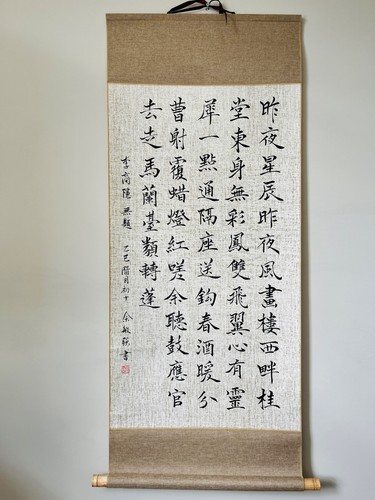 昨夜星辰昨夜風畫樓西畔桂
堂東身無彩鳳雙飛翼心有靈
犀一點通隔座送鈎春酒暖分
曹射覆蜡燈紅嗟余聽鼓應官
去走馬蘭臺類轉蓬
李商隱 無題 乙巳 月初十 余敏 書